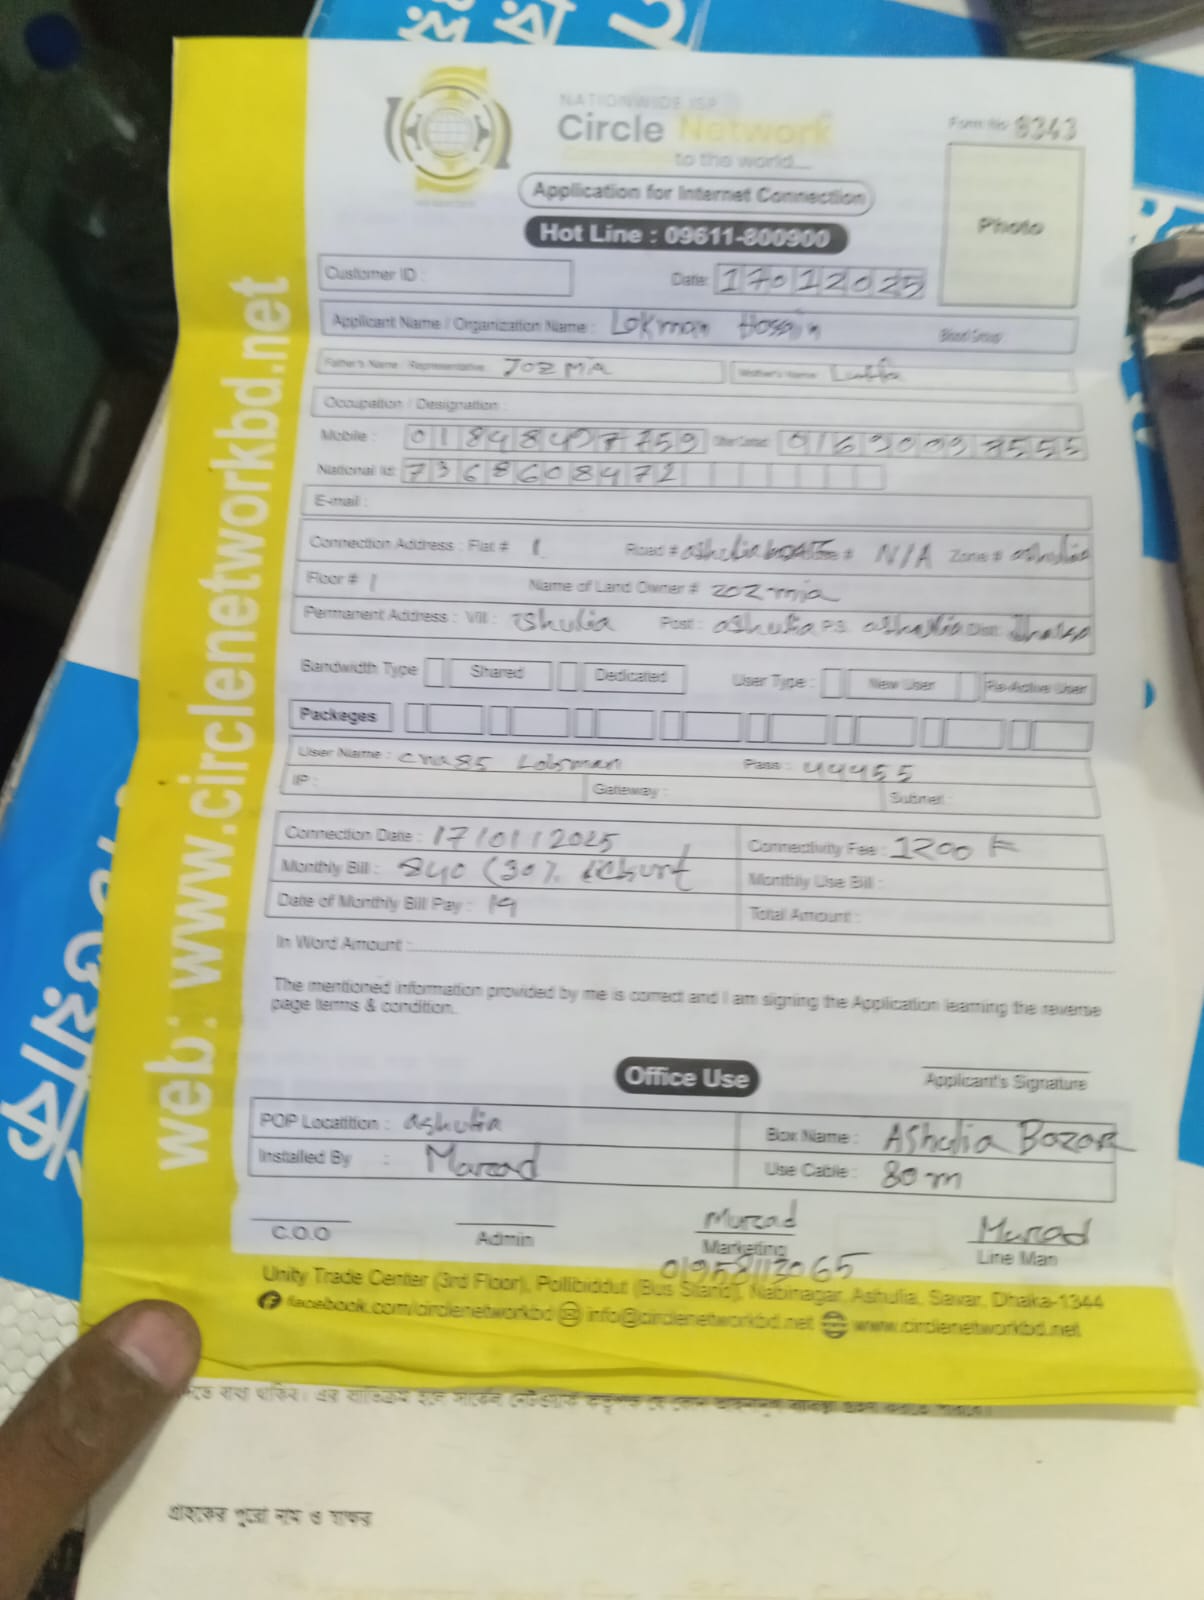 NATIONWIDE ISP
Circle Network
to the world....
Form No 8343
Application for Internet Connection
Photo
Hot Line : 09611-800900
Customer ID :
Date: 17012025
Applicant Name / Organization Name : Lokman Hosain Blood Group
Father's Name / Representative JOZ MIA Mother's Name
Occupation / Designation :
Mobile : 01848407759
National Id: 7368608472
E-mail :
Connection Address : Flat # 1 Road # ashulia N/A Zone # ashulia
Floor # 1 Name of Land Owner # joz mia
Permanent Address : Vill : ashulia Post : ashulia P.S ashulia Dist: Dhaka
Bandwidth Type Shared Dedicated User Type : New User Re-Active User
Packeges
User Name : Pass : 44455
IP : Gateway : Subnet :
Connection Date : 17/01/2025 Connectivity Fee : 1200
Monthly Bill : 840 (30% Monthly Use Bill :
Date of Monthly Bill Pay : 19 Total Amount :
In Word Amount :
The mentioned information provided by me is correct and I am signing the Application learning the reverse
page terms & condition.
Office Use
Applicant's Signature
POP Locatition : ashulia Box Name : AShulia Bazar
Installed By : Murad Use Cable : 80 m
Murad Murad
C.O.O Admin Marketing Line Man
01958113065
Unity Trade Center (3rd Floor), Pollibiddut (Bus Stand), Nabinagar, Ashulia, Savar, Dhaka-1344
facebook.com/circlenetworkbd info@circlenetworkbd.net www.circlenetworkbd.net
web: www.circlenetworkbd.net
গ্রাহকের পুরো নাম ও স্বাক্ষর